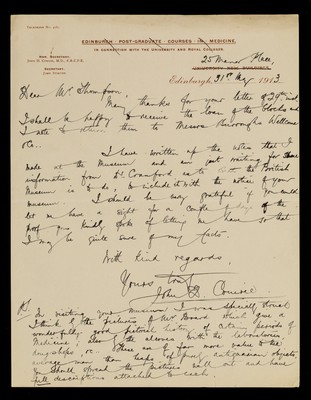 EDINBURGH POST-GRADUATE COURSES IN MEDICINE,
IN CONNECTION WITH THE UNIVERSITY AND ROYAL COLLEGES.
HON. SECRETARY,
JOHN D. COMRIE, M.D., F.R.C.P.E.
SECRETARY,
25 Manor Place,
UNIVERSITY NEW BUILDINGS,
Edinburgh, 31st May 1913
Dear Mr Thompson,
Many thanks for your letter of 29th inst.
I shall be happy to receive the loan of the blocks and
I note to return them to Messrs Burroughs Wellcome
etc.
I have written up the notes that I
made at the Museum and am just waiting for some
information from Dr Crawford as to the British
Museum to include it with the notice of your
museum. I should be very grateful if you could
let me have a sight for a couple of days of the
proof you kindly spoke of letting me have so that
I may be quite sure of my facts.
With kind regards,
Yours truly
John D. Comrie.
PS. In visiting your museum I was specially struck
I think by the pictures of Mr Board which give a
wonderfully good pictorial history of certain periods of
Medicine, also by the alcoves with the laboratories
drug shops, etc. These are of far more value to the
average man than heaps of purely antiquarian objects.
You should spread the pictures well out and have
full descriptions attached to each.